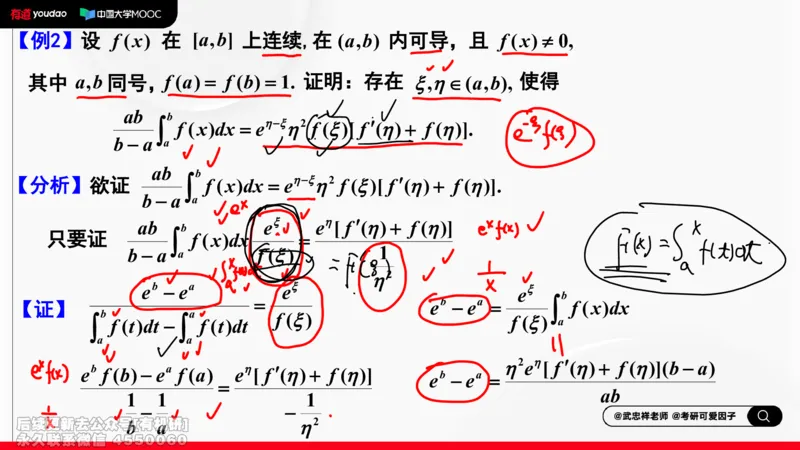 有道 youdao 中国大学MOOC
【例2】设 f(x) 在 [a,b] 上连续, 在 (a,b) 内可导, 且 f(x)≠0,
其中 a,b 同号, f(a) = f(b) = 1. 证明: 存在 ξ,η∈(a,b), 使得
ab/(b−a) ∫_a^b f(x)dx = e^{η−ξ} η² f(ξ)[f′(η) + f(η)].
e^{-ξ} f(ξ)
【分析】欲证 ab/(b−a) ∫_a^b f(x)dx = e^{η−ξ} η² f(ξ)[f′(η) + f(η)].
e^x
只要证 ab/(b−a) ∫_a^b f(x)dx e^ξ/f(ξ) = e^η[f′(η) + f(η)] / (1/η²)
e^x f(x)
1/x
F(x) = ∫_a^x f(t)dt
= F′(ξ)
【证】 (e^b − e^a) / (∫_a^b f(t)dt − ∫_a^a f(t)dt) = e^ξ/f(ξ)
e^b − e^a = e^ξ/f(ξ) ∫_a^b f(x)dx
=
e^x f(x)
1/x
(e^b f(b) − e^a f(a)) / (1/b − 1/a) = e^η[f′(η) + f(η)] / (−1/η²)
e^b − e^a = η² e^η[f′(η) + f(η)](b − a) / ab
@武忠祥老师 @考研可爱因子
后续更新去公众号[有机研]
永久联系微信 4550060